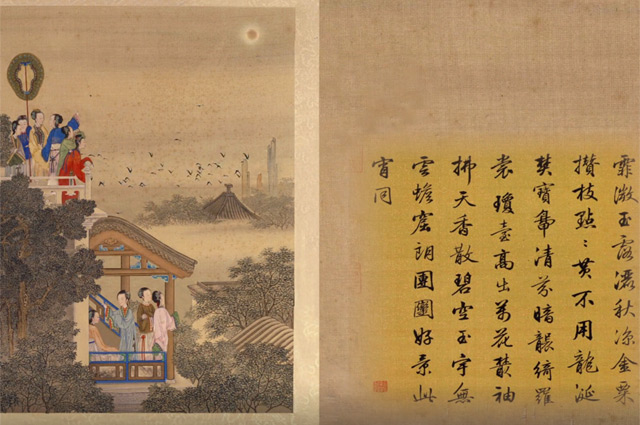 霏微玉露濕秋涼金粟
攢枝點點黃不用龍涎
焚寶鼎清芬暗襲綺羅
裳瓊臺高出萬花叢袖
拂天香散碧空玉宇無
雲蟾窟朗團圞好景此
宵同